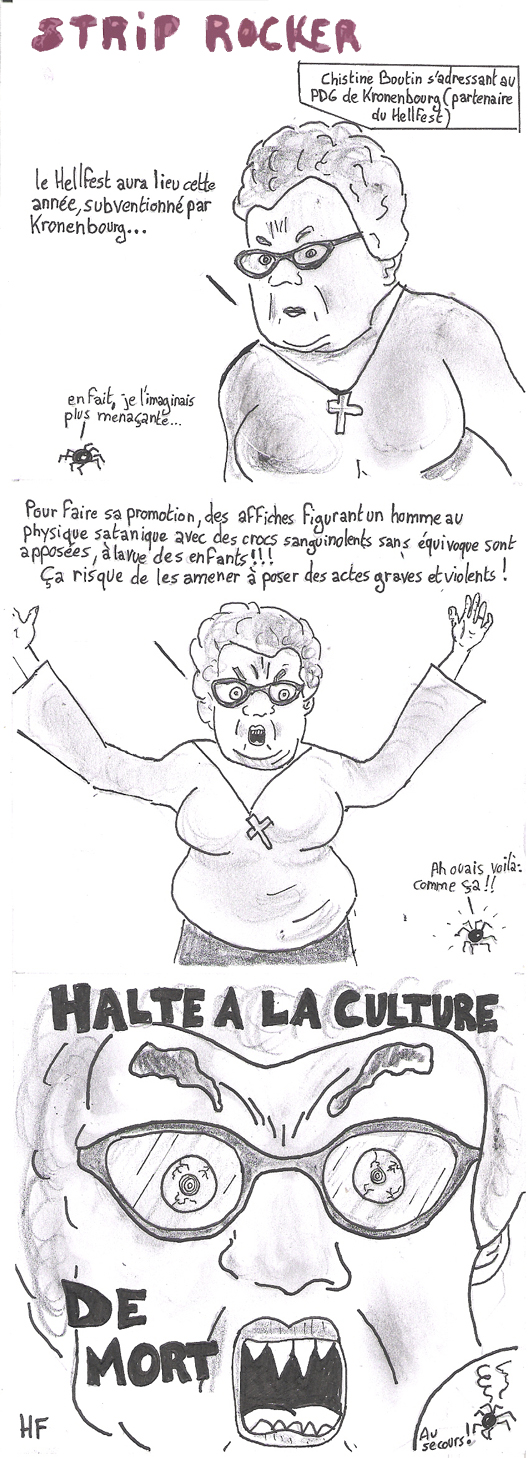 STRIP ROCKER
Chistine Boutin s'adressant au
PDG de Kronenbourg (partenaire
du Hellfest)
le Hellfest aura lieu cette
année, subventionné par
Kronenbourg...
en fait, je l'imaginais
plus menaçante...
Pour faire sa promotion, des affiches figurant un homme au
physique satanique avec des crocs sanguinolents sans équivoque sont
apposées, à la vue des enfants!!!
Ça risque de les amener à poser des actes graves et violents!
Ah ouais voilà:
comme ça!!
HALTE A LA CULTURE
DE
MORT
Au
secours!
HF